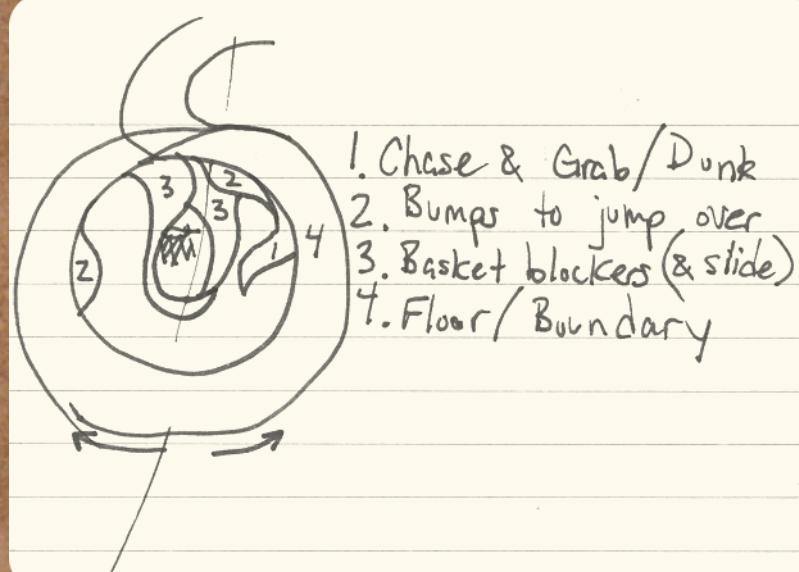 3
2
3
2
1
4
1. Chase & Grab/Dunk
2. Bumps to jump over
3. Basket blockers (& slide)
4. Floor/Boundary